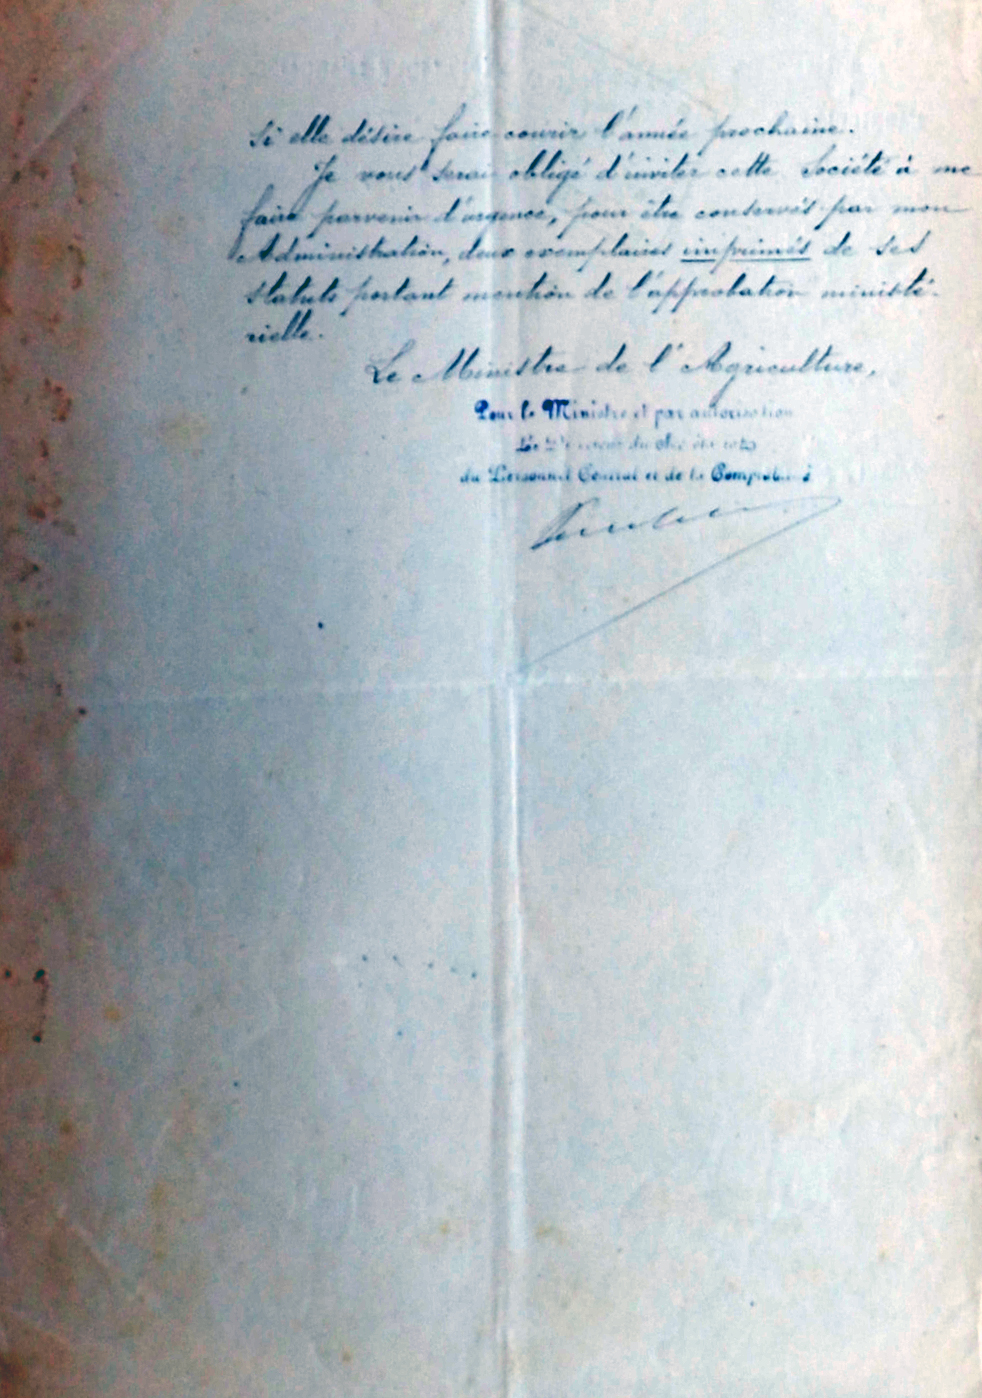 si elle désire faire courir l'année prochaine.
Je vous serai obligé d'inviter cette Société à me
faire parvenir d'urgence, pour être conservés par mon
Administration, deux exemplaires imprimés de ses
statuts portant mention de l'approbation ministé-
rielle.
Le Ministre de l'Agriculture,
Pour le Ministre et par autorisation
du Personnel Central et de la Comptabilité